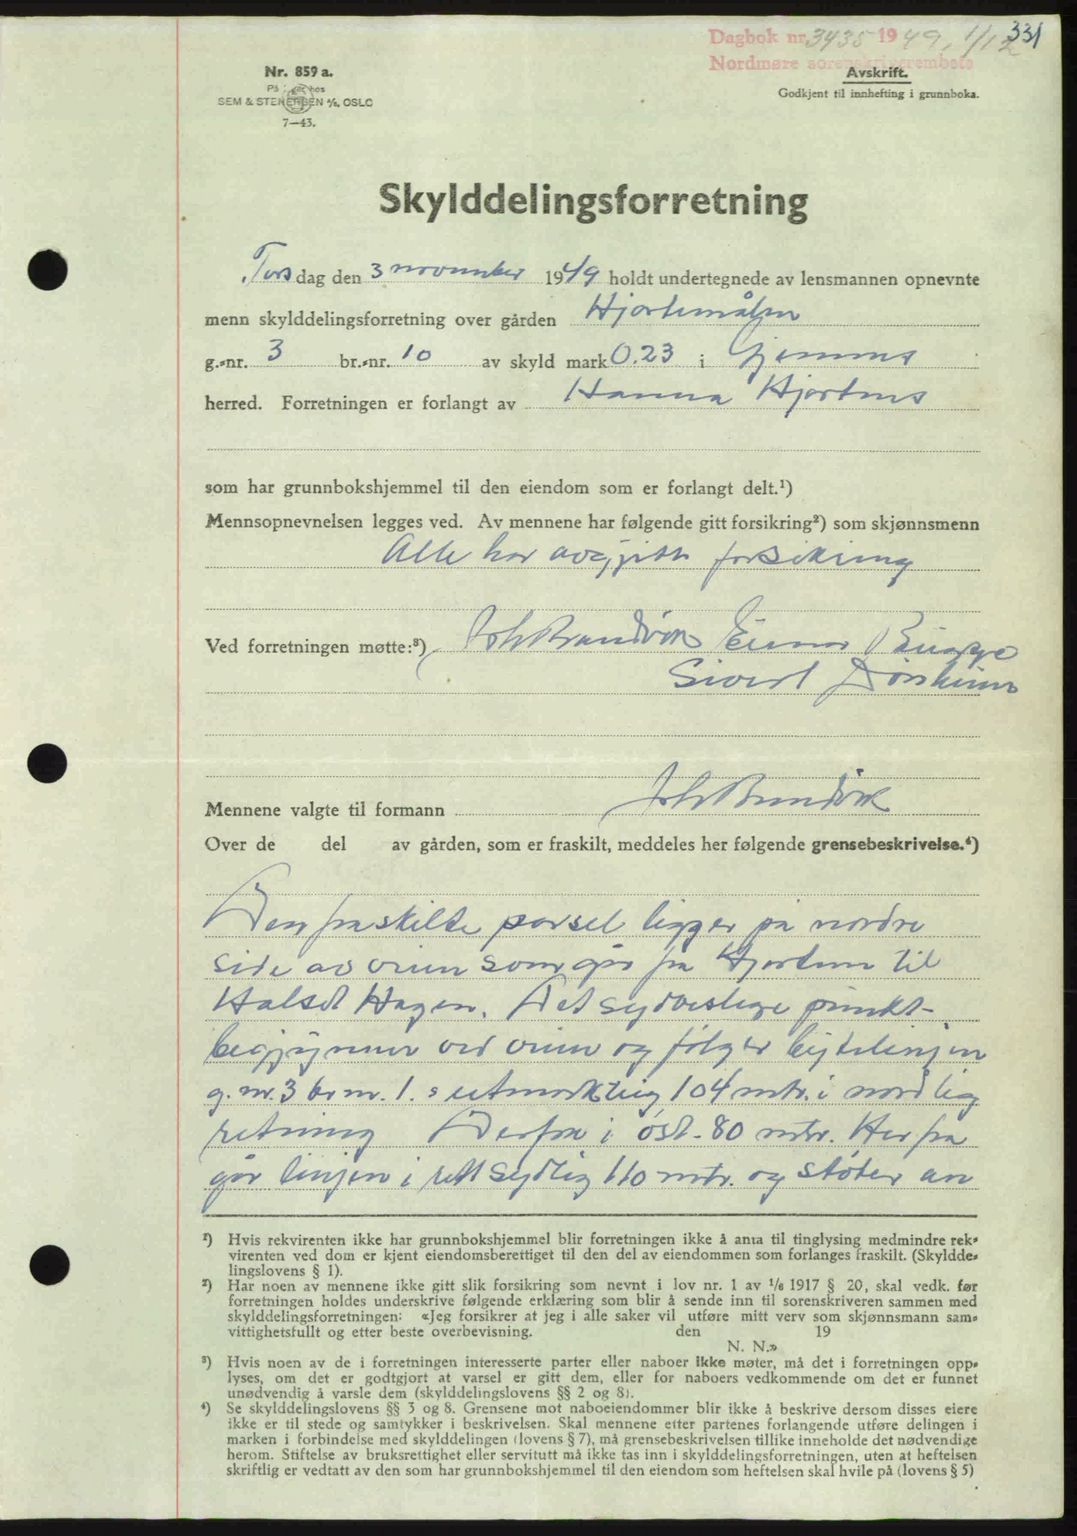 331
Dagbok nr. 3435 1949, 1/12
Nordmøre sorenskriverembete
Nr. 859 a.
På lager hos
SEM & STENERSEN A/S, OSLO
7—43.
Avskrift.
Godkjent til innhefting i grunnboka.
Skylddelingsforretning
Torsdag den 3 november 1949 holdt undertegnede av lensmannen opnevnte
menn skylddelingsforretning over gården
g.-nr. 3 br.-nr. 10 av skyld mark 0.23 i Gjemnes
herred. Forretningen er forlangt av Hanna Hjortnes
som har grunnbokshjemmel til den eiendom som er forlangt delt.¹)
Mennsopnevnelsen legges ved. Av mennene har følgende gitt forsikring²) som skjønnsmenn
Alle har avgjitt forsikring
Ved forretningen møtte:³) Joh Brandvik Einar
Sivert
Mennene valgte til formann Joh Brandvik
Over de del av gården, som er fraskilt, meddeles her følgende grensebeskrivelse.⁴)
Den fraskilte parsel ligger på nordre
side av veien som går fra til
Halset Hagen. Det sydvestlige punkt
begjynner ved veien og følger bytelinjen
g. nr. 3 br nr. 1. s utmarkteig 104 mtr. i nordlig
retning Derfra i øst - 80 mtr. Her fra
går linjen i rett sydlig 110 mtr. og støter an
¹) Hvis rekvirenten ikke har grunnbokshjemmel blir forretningen ikke å anta til tinglysing medmindre rek-
virenten ved dom er kjent eiendomsberettiget til den del av eiendommen som forlanges fraskilt. (Skyldde-
lingslovens § 1).
²) Har noen av mennene ikke gitt slik forsikring som nevnt i lov nr. 1 av 1/6 1917 § 20, skal vedk. før
forretningen holdes underskrive følgende erklæring som blir å sende inn til sorenskriveren sammen med
skylddelingsforretningen: «Jeg forsikrer at jeg i alle saker vil utføre mitt verv som skjønnsmann sam-
vittighetsfullt og etter beste overbevisning. den 19
N. N.»
³) Hvis noen av de i forretningen interesserte parter eller naboer ikke møter, må det i forretningen opp-
lyses, om det er godtgjort at varsel er gitt dem, eller for naboers vedkommende om det er funnet
unødvendig å varsle dem (skylddelingslovens §§ 2 og 8).
⁴) Se skylddelingslovens §§ 3 og 8. Grensene mot naboeiendommer blir ikke å beskrive dersom disses eiere
ikke er til stede og samtykker i beskrivelsen. Skal mennene etter partenes forlangende utføre delingen i
marken i forbindelse med skylddelingen (lovens § 7), må grensebeskrivelsen tillike inneholde det nødvendige
herom. Stiftelse av bruksrettighet eller servitutt må ikke tas inn i skylddelingsforretningen, uten at heftelsen
skriftlig er vedtatt av den som har grunnbokshjemmel til den eiendom som heftelsen skal hvile på (lovens § 5)